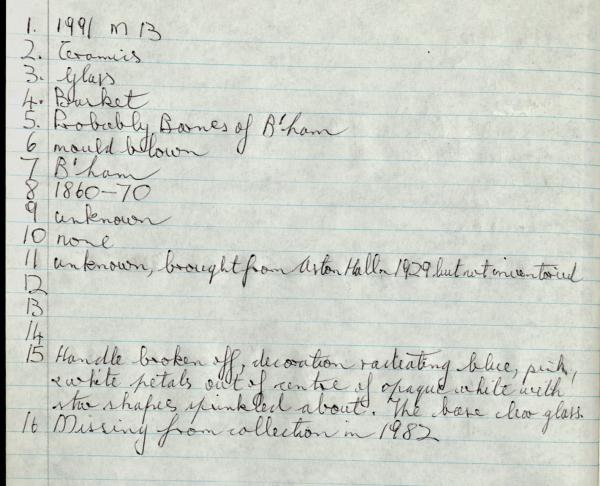 1. 1991 M 13
2. Ceramics
3. Glass
4. Basket
5. Probably Barnes of B'ham
6 mould blown
7 B'ham
8 1860–70
9 unknown
10 none
11 unknown, brought from Aston Hall in 1929 but not inventoried
12
13
14
15 Handle broken off, decoration radiating blue, pink,
& white petals out of centre of opaque white with
star shapes sprinkled about. The base clear glass.
16 Missing from collection in 1982